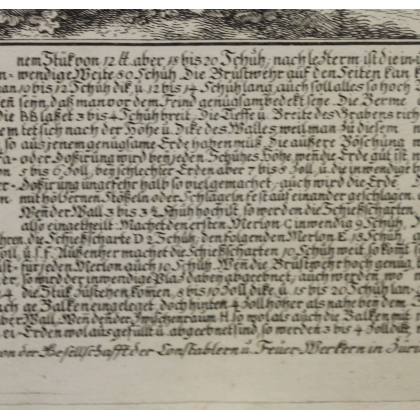 nem Stük von 12 ℔. aber 18 bis 20 Schüh, nach lesterm ist die in-
wendige Weite 50 Schüh. Die Brüstwehr auf den Seiten kan
man 10 bis 12 Schüh dik ü. 12 bis 14 Schüh lang auch soll alles so hoch
seÿn, daß man vor dem Feind genügsam bedekt seÿe. Die Berme
die BB laßet 3 bis 4 Schüh breit. Die Tieffe ü. Breite des Grabens
tet sich nach der Höhe ü. Dike des Walles weil man zu diesem
so aus jenem genügsame Erde haben müß. Die aüßere Böschüng
oder Doßirüng wird beÿ jeden Schühes Höhe, wen die Erde güt ist
5 bis 6 Zoll, beÿ schlechter Erden aber 7 bis 8 Zoll, ü. die inwendige
Doßirüng üngefehr halb so viel gemachet, auch wird die Erde
mit hölßernen Stößeln oder Schlägeln fest auf einander geschlagen.
Wen der Wall 3 bis 3½ Schüh hoch ist, so werden die Schießscharten
also eingetheilt. Machet den ersten Merlon C inwendig 9 Schüh,
die Schießscharte D 2 Schüh, den folgenden Merlon E 18 Schüh
ü. s. f. Außenher machet die Schießscharten 10 Schüh weit, so komt
für jeden Merlon auch 10 Schüh. Wen die Brüstwehr hoch genüg
so wird der inwendige Plaz eben abgeebnet, auch werden, wo
die Stük zü stehen komen, 8 bis 10 Zoll dike ü. 15 bis 20 Schüh lan-
ge Balken eingeleget, doch hinten 4 Zoll höher als nahe beÿ dem
Wall. Wen den der Zwischenraüm H so wol als auch die Balken mit
Erden wol ausgefüllt ü. abgeebnet sind, so werden 3 bis 4 Zoll dike
von der Gesellschafft der Constablern ü. Feüer Werkern in Zür